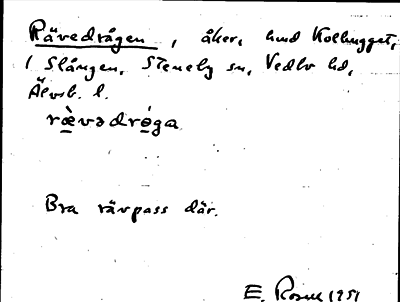 Rävedrågen, åker, hmd Kolhugget,
1 Slången, Steneby sn, Vedbo hd,
Älvsb. l.
ræ̀vədrǿga
Bra rävpass där.
E. Rosell 1951